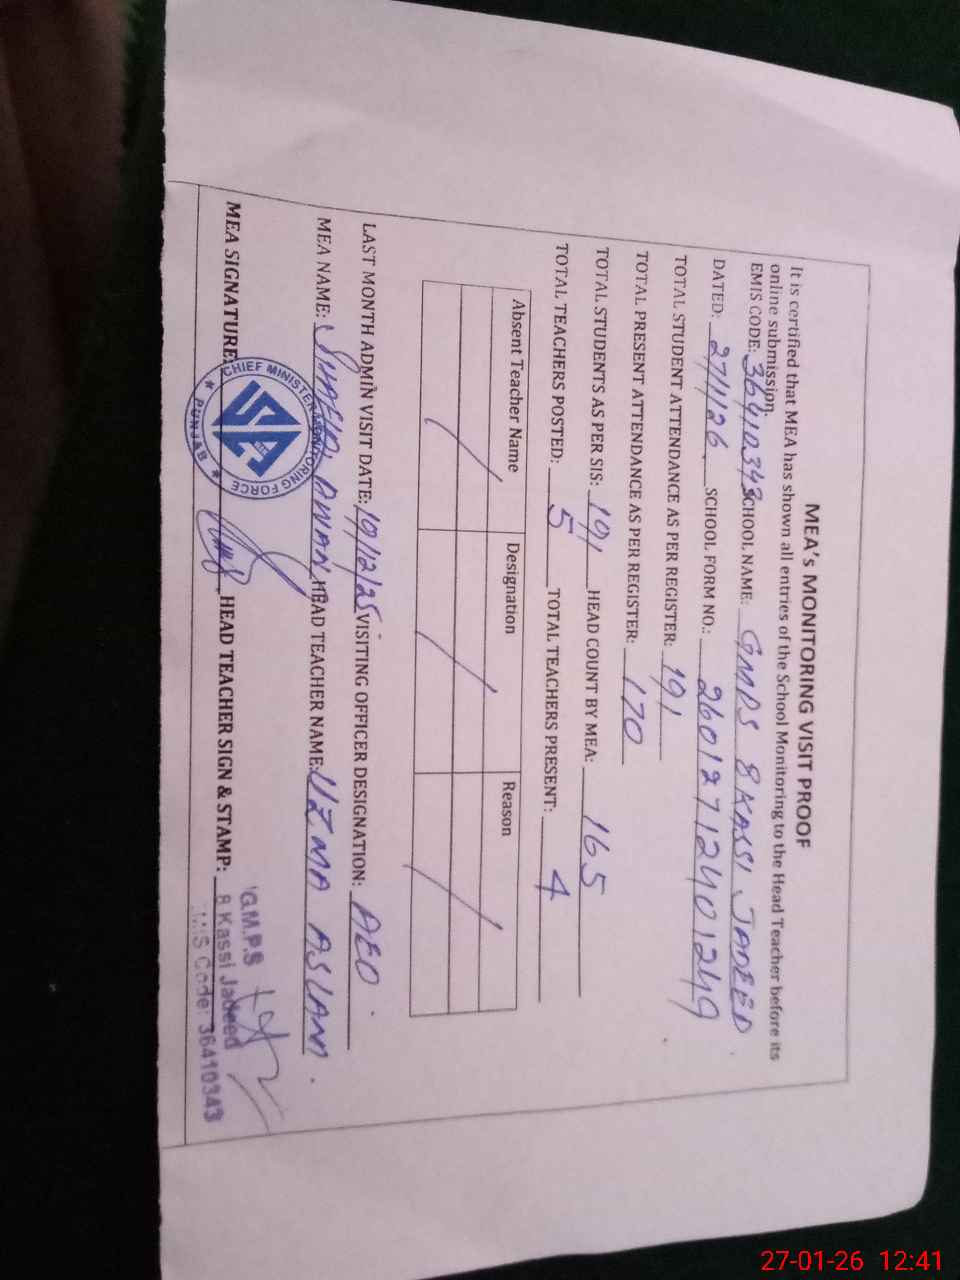 MEA's MONITORING VISIT PROOF
It is certified that MEA has shown all entries of the School Monitoring to the Head Teacher before its
online submission.
EMIS CODE: 36410343 SCHOOL NAME: GMPS 8 KASSI JADEED
DATED: 27/1/26 SCHOOL FORM NO.: 26012712401249
TOTAL STUDENT ATTENDANCE AS PER REGISTER: 191
TOTAL PRESENT ATTENDANCE AS PER REGISTER: 170
TOTAL STUDENTS AS PER SIS: 191 HEAD COUNT BY MEA: 165
TOTAL TEACHERS POSTED: 5 TOTAL TEACHERS PRESENT: 4
Absent Teacher Name Designation Reason
LAST MONTH ADMIN VISIT DATE: 19/12/25 VISITING OFFICER DESIGNATION: AEO
MEA NAME: AWAN HEAD TEACHER NAME: UZMA ASLAM
MEA SIGNATURE: HEAD TEACHER SIGN & STAMP:
CHIEF MINISTER MONITORING FORCE
PUNJAB
G.M.P.S
8 Kassi Jadeed
EMIS Code: 36410343
27-01-26 12:41